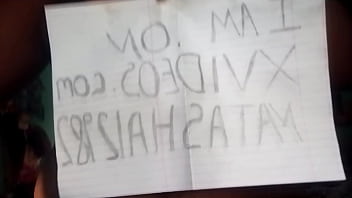 I AM .ON
XVIDEOS.com
NATASHA12982